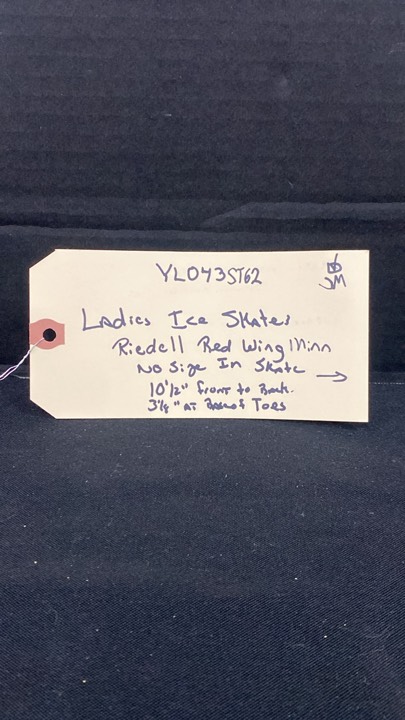 YL043ST62
JM
Ladies Ice Skates
Riedell Red Wing Minn
No Size In Skate →
10 1/2" front to Back.
" AT Base of Toes